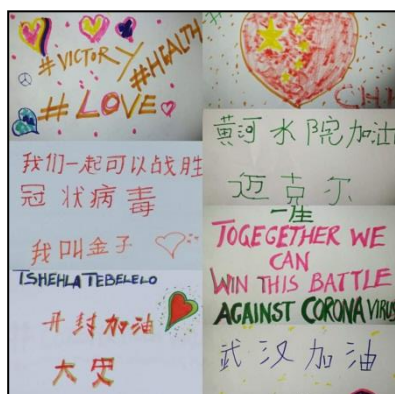 #VICTORY
#HEALTH
#LOVE
我们一起可以战胜
冠状病毒
我叫金子
TSHEHLA TEBELELO
开封加油
大史
黄河水院加油
迈克尔
一生
TOGEGETHER WE
CAN
WIN THIS BATTLE
AGAINST CORONA VIRUS
武汉加油